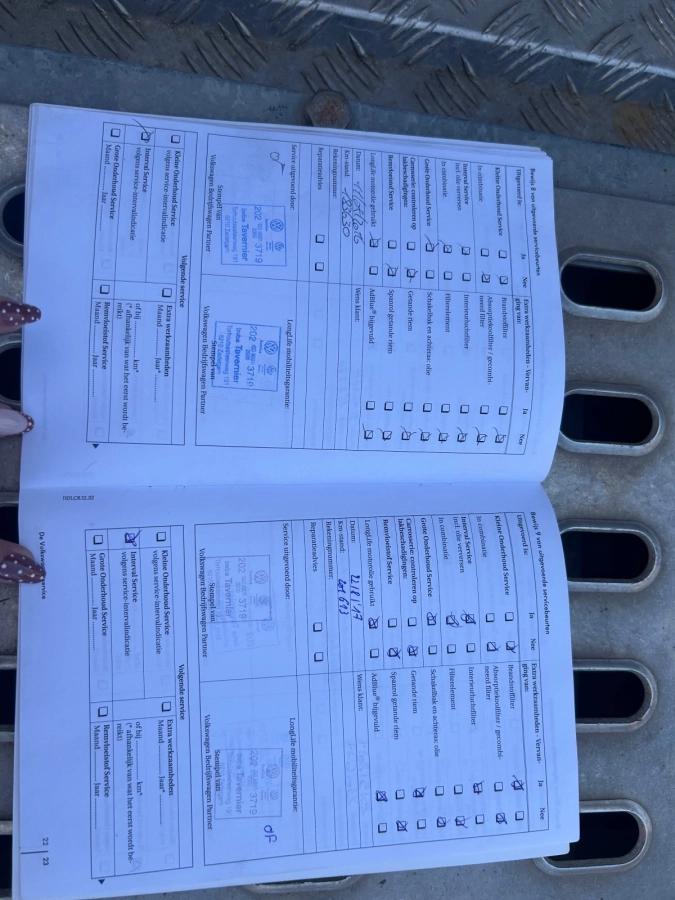 Bewijs 8 van uitgevoerde servicebeurten
Uitgevoerd is: Ja Nee
Kleine Onderhoud Service
In combinatie
Interval Service
incl. olie verversen
In combinatie
Grote Onderhoud Service
Carrosserie controleren op
lakbeschadigingen:
Remvloeistof Service
LongLife motorolie gebruikt
Datum:
Km-stand:
Rekeningnummer:
Reparatieadvies
Extra werkzaamheden - Vervan-
ging van: Ja Nee
Brandstoffilter
Absorptiekoolfilter / gecombi-
neerd filter
Interieurluchtfilter
Filterelement
Schakelbak en achteras: olie
Getande riem
Spanrol getande riem
AdBlue® bijgevuld
Wens klant:
Service uitgevoerd door:
202 3719
Tavernier
Stempel van
Volkswagen Bedrijfswagen Partner
LongLife mobiliteitsgarantie:
202 3719
Tavernier
Stempel van
Volkswagen Bedrijfswagen Partner
Volgende service
Kleine Onderhoud Service
volgens service-intervalindicatie
Interval Service
volgens service-intervalindicatie
Grote Onderhoud Service
Maand Jaar
Extra werkzaamheden
Maand Jaar*
of bij km*
(* afhankelijk van wat het eerst wordt be-
reikt)
Remvloeistof Service
Maand Jaar
Bewijs 9 van uitgevoerde servicebeurten
Uitgevoerd is: Ja Nee
Kleine Onderhoud Service
In combinatie
Interval Service
incl. olie verversen
In combinatie
Grote Onderhoud Service
Carrosserie controleren op
lakbeschadigingen:
Remvloeistof Service
LongLife motorolie gebruikt
Datum: 22/8/17
Km-stand:
Rekeningnummer:
Reparatieadvies
Extra werkzaamheden - Vervan-
ging van: Ja Nee
Brandstoffilter
Absorptiekoolfilter / gecombi-
neerd filter
Interieurluchtfilter
Filterelement
Schakelbak en achteras: olie
Getande riem
Spanrol getande riem
AdBlue® bijgevuld
Wens klant:
Service uitgevoerd door:
Stempel van
Volkswagen Bedrijfswagen Partner
LongLife mobiliteitsgarantie:
202 3719
Tavernier
Stempel van
Volkswagen Bedrijfswagen Partner
Volgende service
Kleine Onderhoud Service
volgens service-intervalindicatie
Interval Service
volgens service-intervalindicatie
Grote Onderhoud Service
Maand Jaar
Extra werkzaamheden
Maand Jaar*
of bij km*
(* afhankelijk van wat het eerst wordt be-
reikt)
Remvloeistof Service
Maand Jaar
De Volkswagenservice
22 | 23